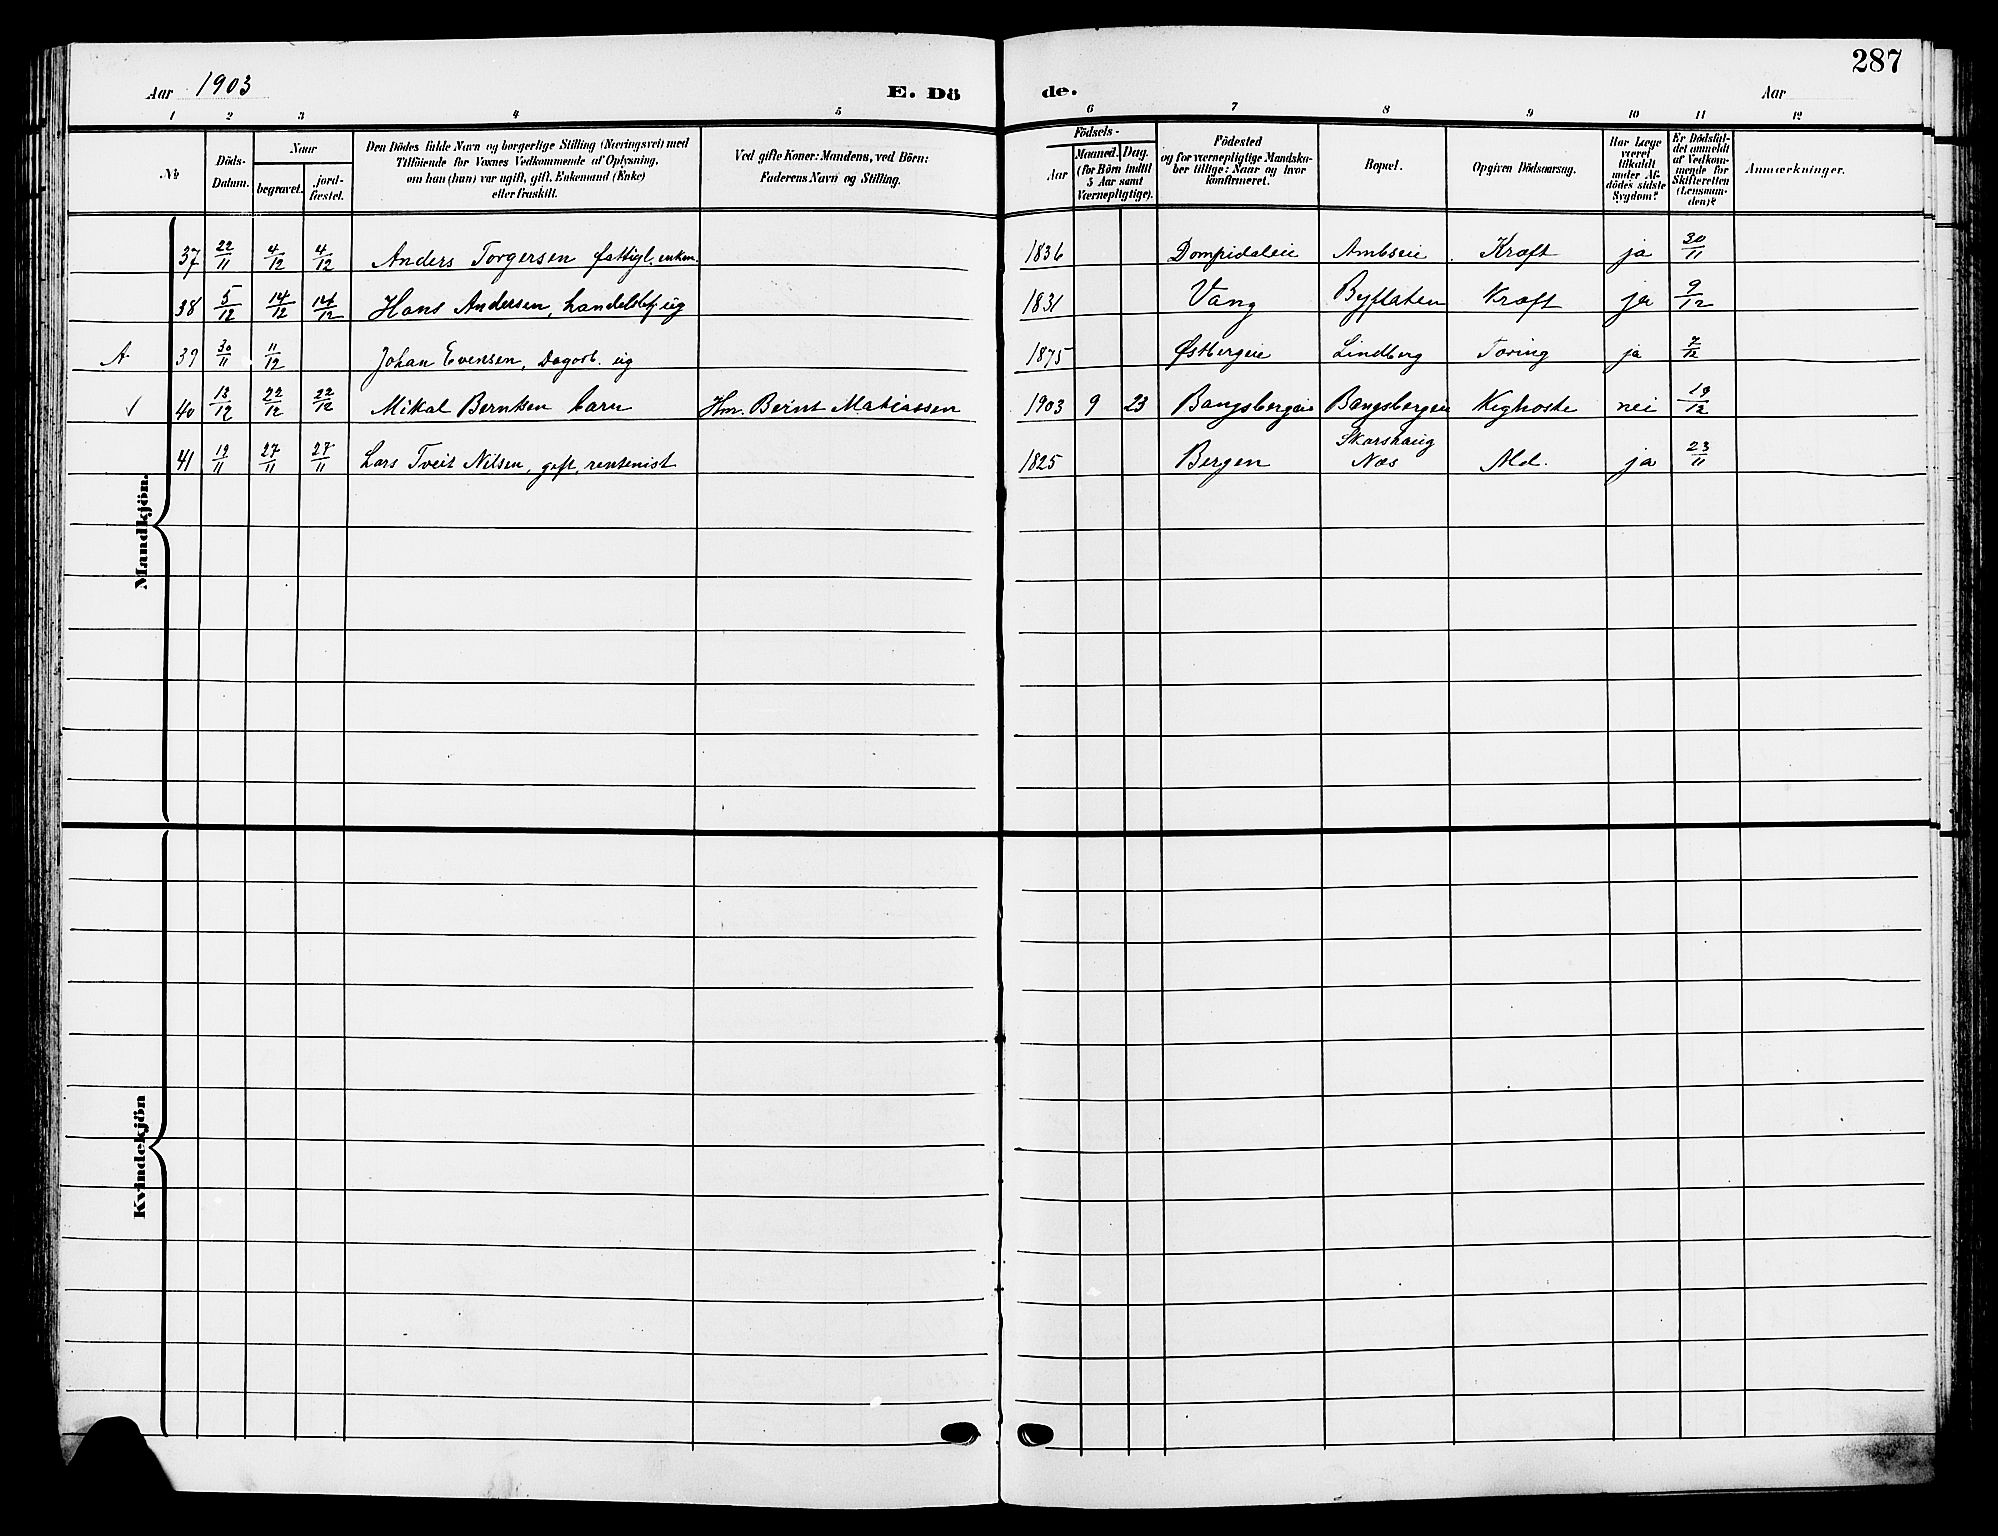 287
Aar 1903
E. Dö de.
Aar
1 2 3 4 5 6 7 8 9 10 11 12
No
Döds-Datum.
Naar
begravet.
jord-fæstet.
Den Dödes fulde Navn og borgerlige Stilling (Næringsvei) med
Tilföiende for Voxnes Vedkommende af Oplysning,
om han (hun) var ugift, gift, Enkemand (Enke)
eller fraskilt.
Ved gifte Koner: Mandens, ved Börn:
Faderens Navn og Stilling.
Födsels-
Aar
Maaned. Dag.
(for Börn indtil
5 Aar samt
Værnepligtige).
Födested
og for værnepligtige Mandska-
ber tillige: Naar og hvor
konfirmeret.
Bopæl.
Opgiven Dödsaarsag.
Har Læge
været
tilkaldt
under Af-
dödes sidste
Sygdom?
Er Dödsfal-
det anmeldt
af Vedkom-
mende for
Skifteretten
(Lensman-
den)?
Anmærkninger.
Mandkjön.
37 22/11 4/12 4/12 Anders Torgersen fattigl. enkem. 1836 Dompidaleie Ambseie Kræft ja 30/11
38 5/12 14/12 14/12 Hans Andersen, handelsbf ug 1831 Vang Byflaten Kræft ja 9/12
A 39 30/11 11/12 Johan Evensen, Dagarb. ug 1875 Østbergeie Lindberg Tæring ja 7/12
✓ 40 13/12 22/12 22/12 Mikal Berntsen barn Hm. Bernt Matiassen 1903 9 23 Bangsbergeie Bangsbergeie Kighoste nei 19/12
41 19/11 27/11 27/11 Lars Tveit Nilsen, gift, rentenist 1825 Bergen Skarshaug Næs Ald. ja 23/11
Kvindekjön